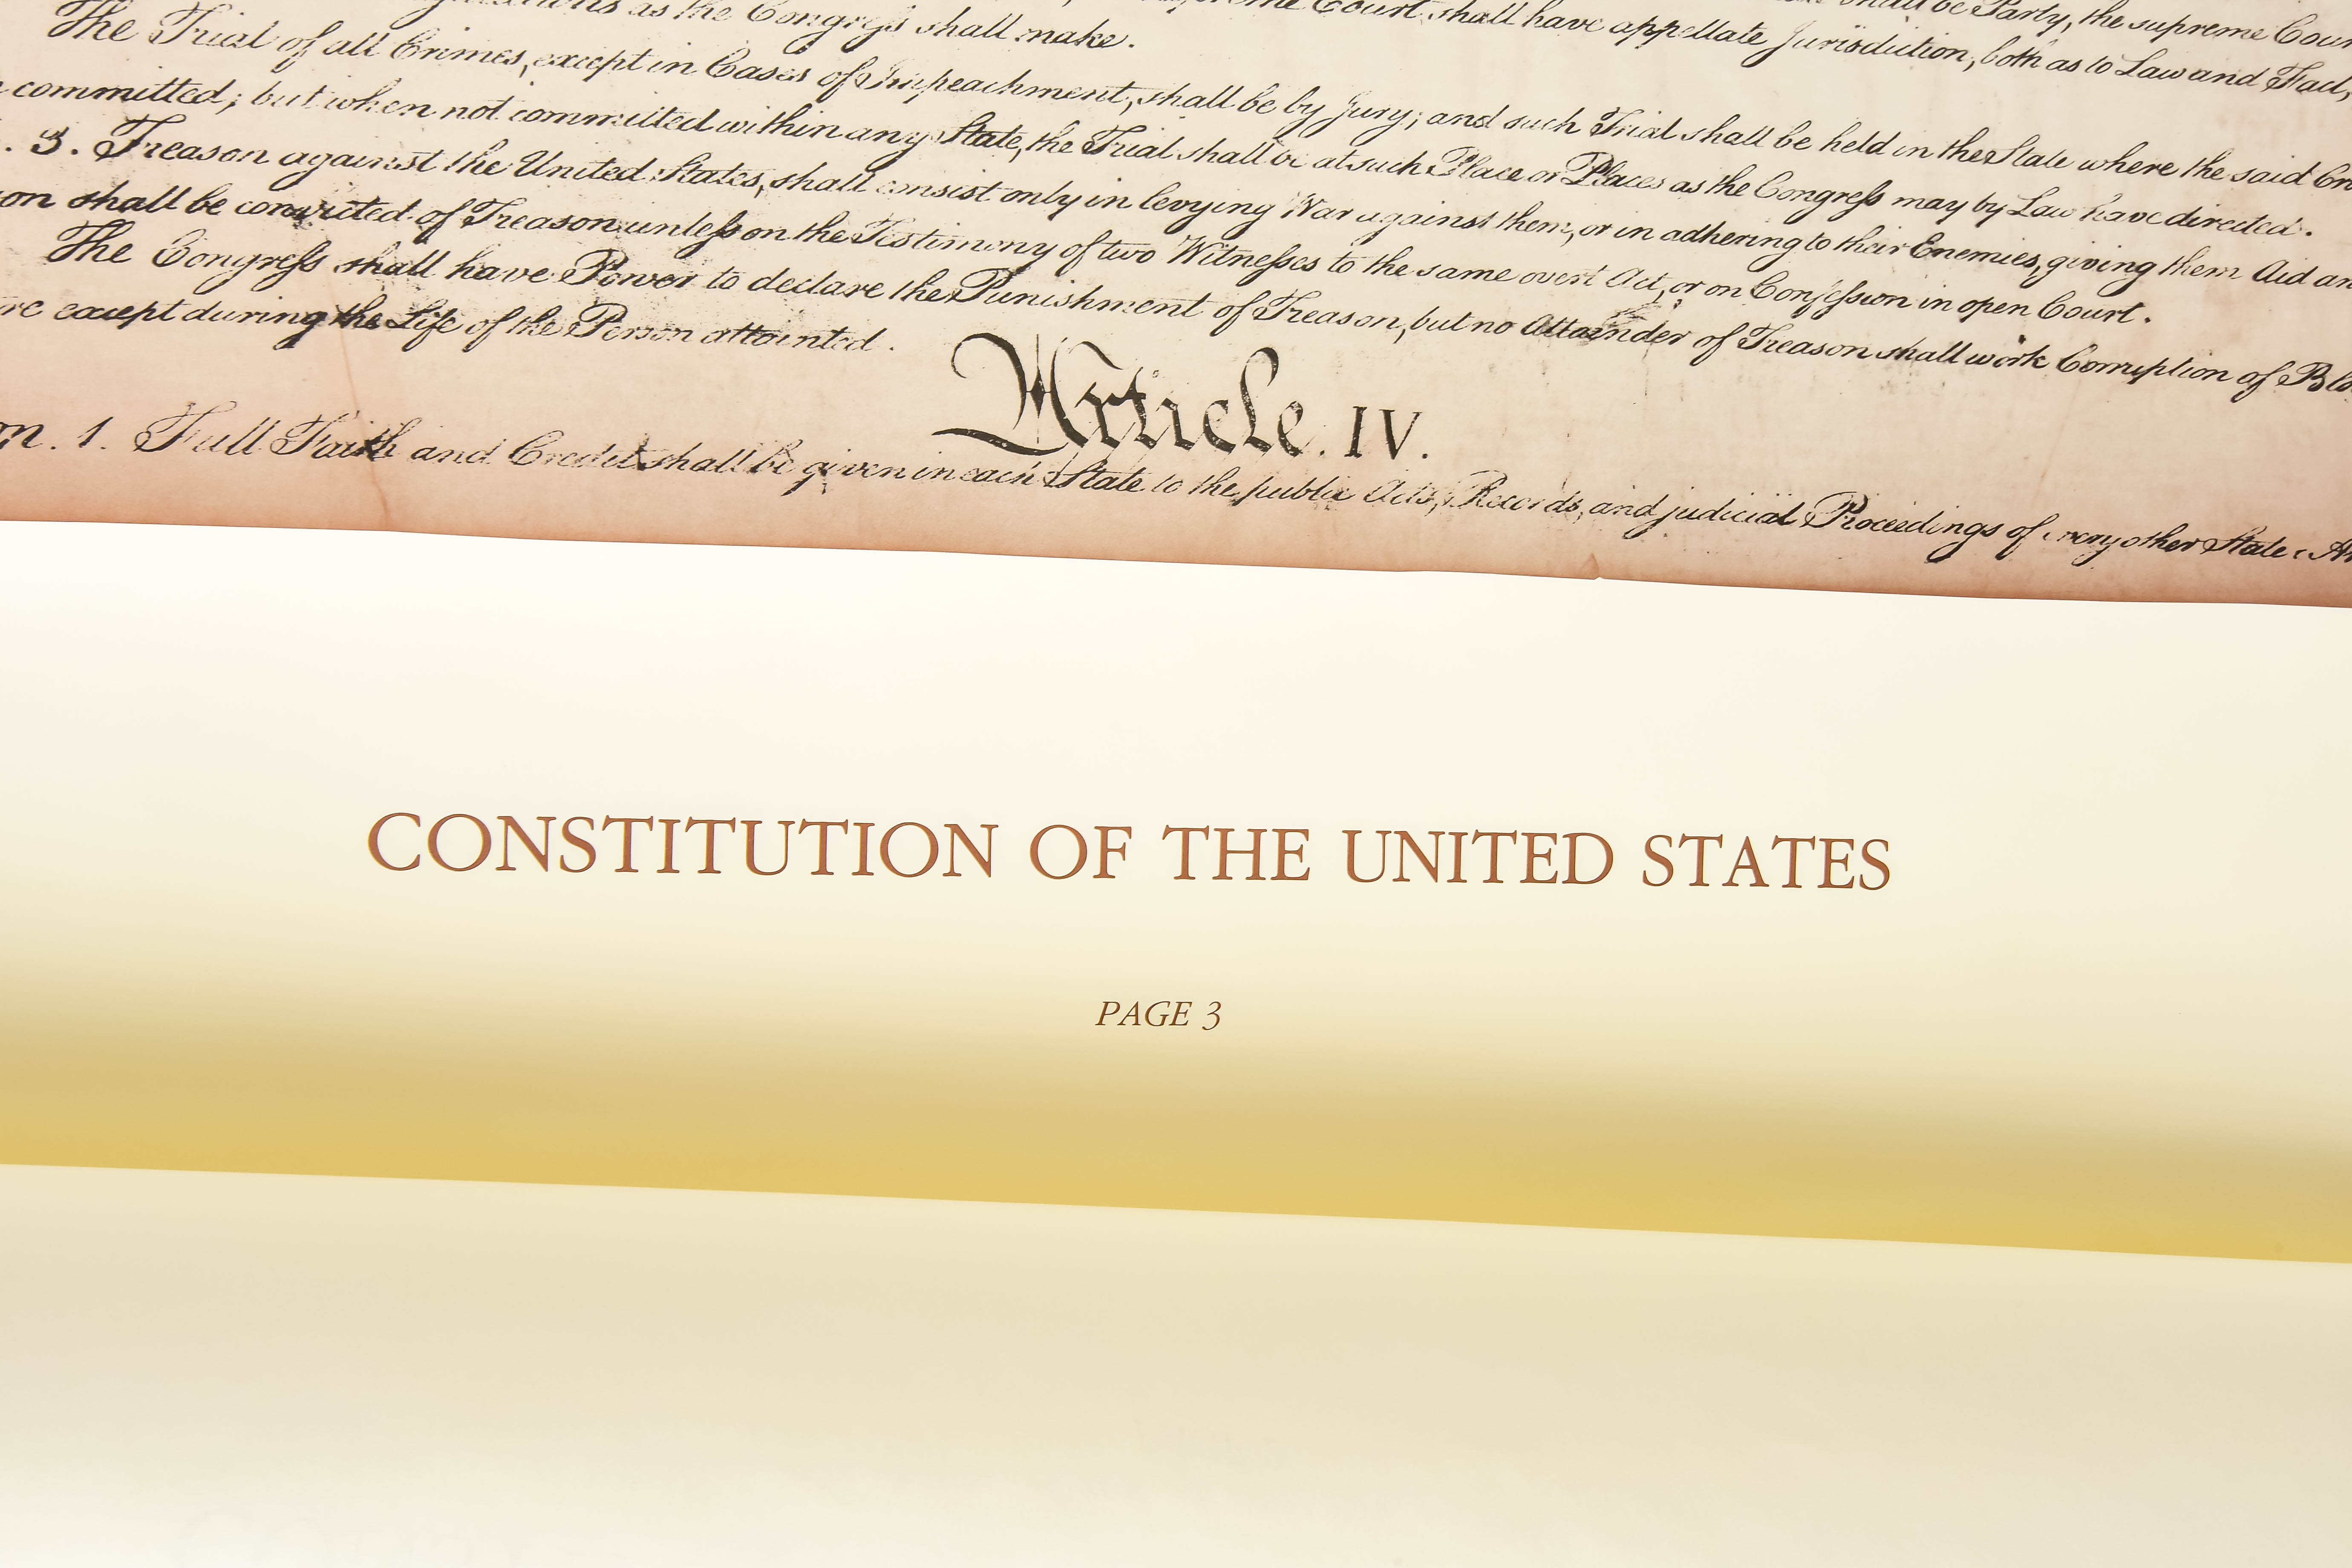 shall be Party, the supreme Cour
Court shall have appellate Jurisdiction, both as to Law and Fact,
as the Congress shall make.
The Trial of all Crimes, except in Cases of Impeachment, shall be by Jury; and such Trial shall be held in the State where the said Cri
committed; but when not committed within any State, the Trial shall be at such Place or Places as the Congress may by Law have directed.
. 3. Treason against the United States, shall consist only in levying War against them, or in adhering to their Enemies, giving them Aid an
on shall be convicted of Treason unless on the Testimony of two Witnesses to the same overt Act, or on Confession in open Court.
The Congress shall have Power to declare the Punishment of Treason, but no Attainder of Treason shall work Corruption of Blo
re except during the Life of the Person attainted.
Article. IV.
on. 1. Full Faith and Credit shall be given in each State to the public Acts, Records, and judicial Proceedings of every other State. An
CONSTITUTION OF THE UNITED STATES
PAGE 3